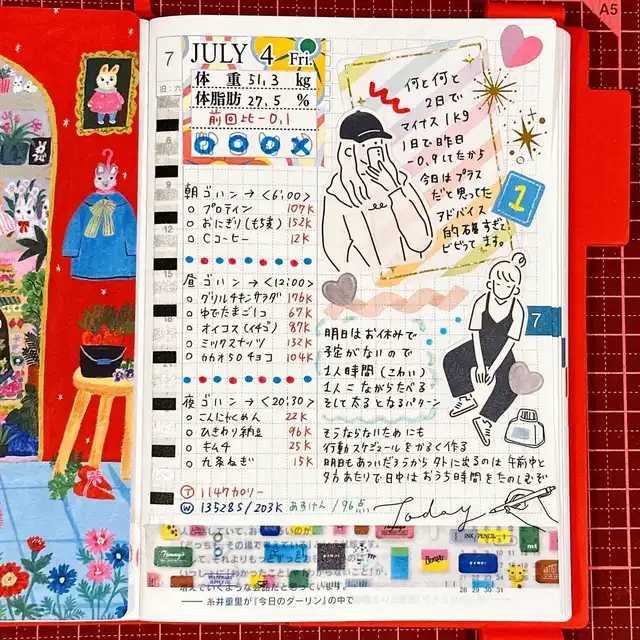 A5
7
JULY 4 Fri.
旧:六
体 重 51.3 kg
体脂肪 27.5 %
前回比-0.1
何と何と
2日で
マイナス1kg
1日で昨日
-0.9してたから
今日はプラス
だと思ってた
アドバイス
的確すぎて
ビビってます。
1
朝ゴハン→<6:00>
プロテイン 107K
おにぎり(もち麦) 152K
Cコーヒー 12K
昼ゴハン→<12:00>
グリルチキンサラダ 176K
ゆでたまご1コ 67K
オイコス(イチゴ) 87K
ミックスナッツ 132K
カカオ50チョコ 104K
夜ゴハン→<20:30>
こんにゃくめん 22K
ひきわり納豆 96K
キムチ 25K
九条ねぎ 15K
T 1147カロリー
W 13528S/203K あすけん/96点
7
明日はお休みで
予定がないので
1人時間(こわい)
1人こながらたべる
そして太るとなるパターン
そうならないためにも
行動スケジュールをかるく作る
明日もあついだろうから外に出るのは午前中と
夕方あたりで日中はおうち時間をたのしむぞ
Today
9
12
15
18
21
INK PENCIL
mt
── 糸井重里が『今日のダーリン』の中で